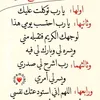 أولها، يارب توكلت عليك
وثانيها، يارب احتسب يومي هذا
لوجهك الكريم فتقبله مني
ويسر لي وبارك لي فيه
وثالثها، يارب اشرح لي صدري
ويسر لي أمري
ورابعها، اللهم إني استودعتك نفسي